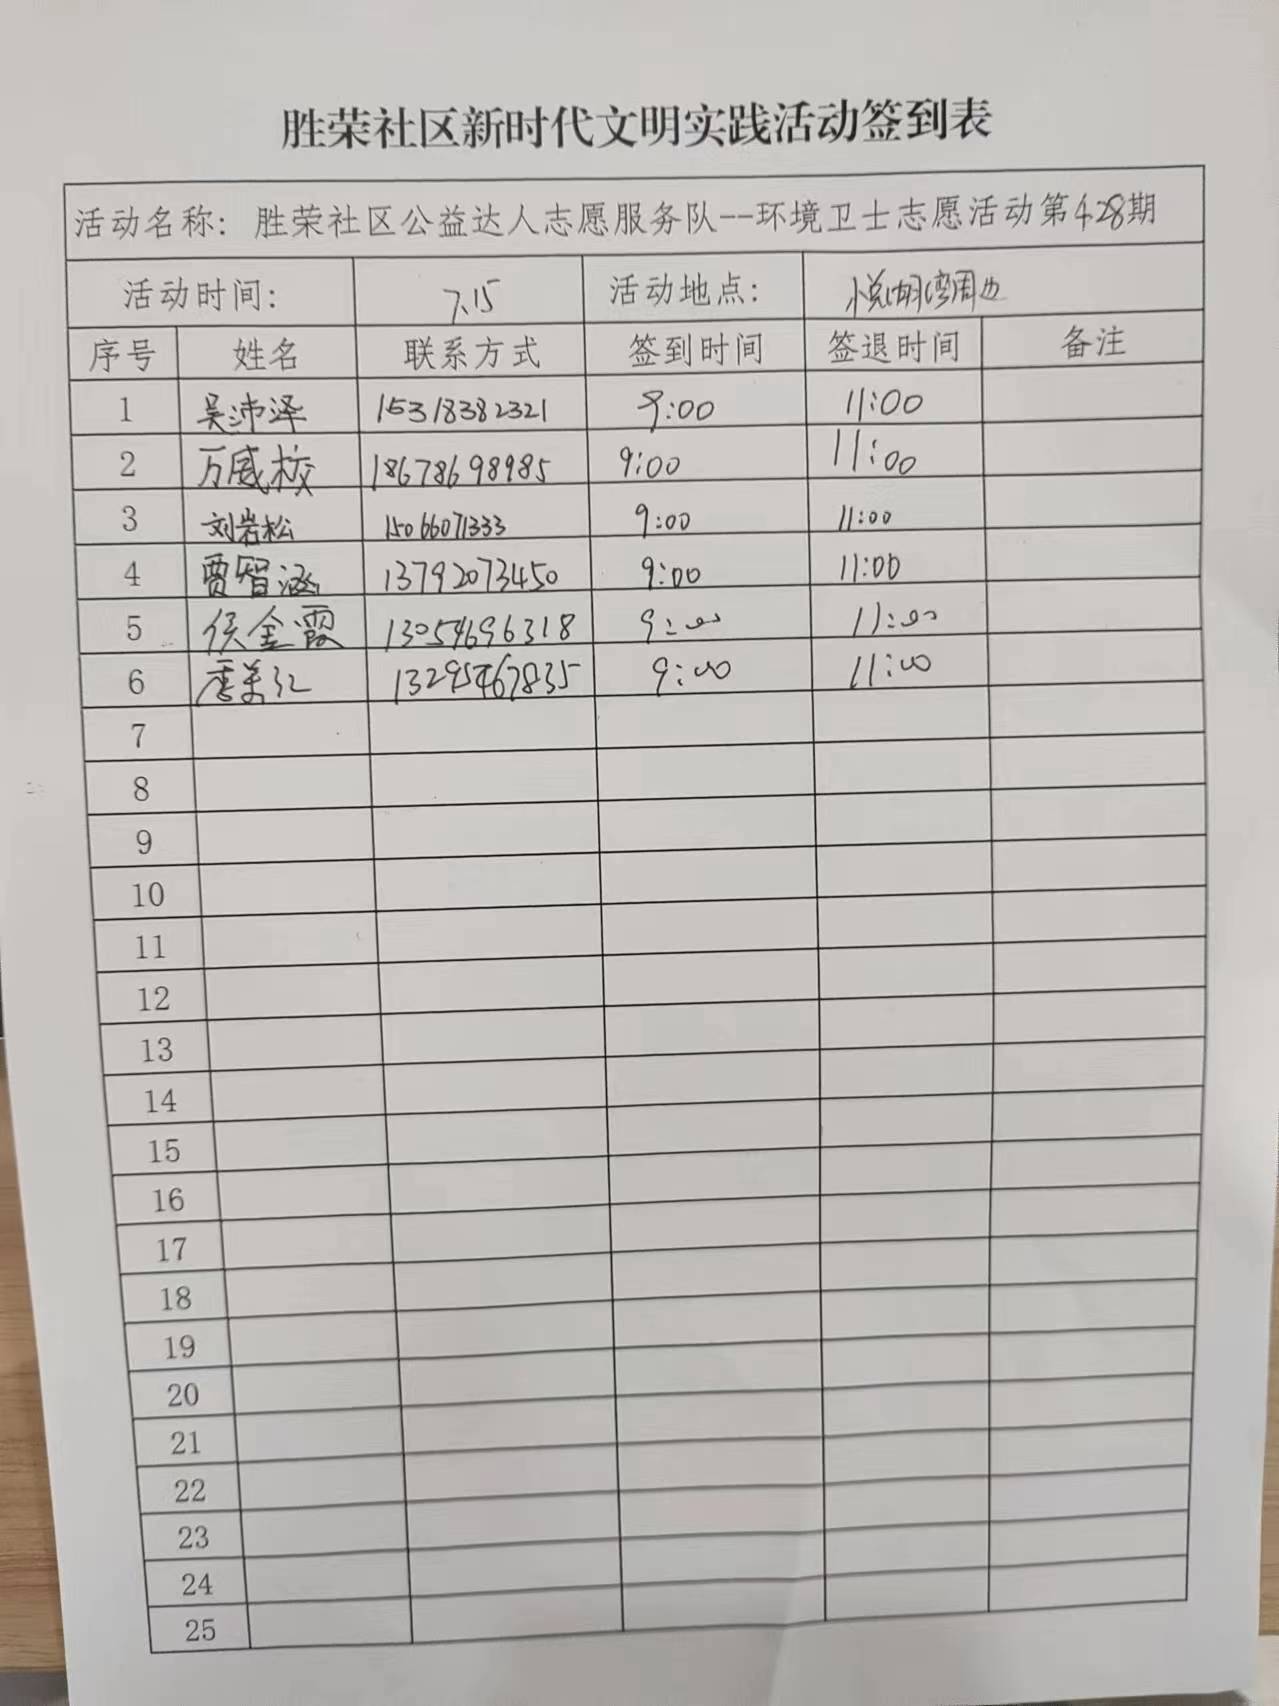 胜荣社区新时代文明实践活动签到表
活动名称：胜荣社区公益达人志愿服务队--环境卫士志愿活动第428期
活动时间： 7.15 活动地点： 悦湖湾周边
序号 姓名 联系方式 签到时间 签退时间 备注
1 吴沛泽 15318382321 9:00 11:00
2 万威校 18678698985 9:00 11:00
3 刘岩松 15066071333 9:00 11:00
4 贾智涵 13792073450 9:00 11:00
5 侯金霞 13054696318 9:00 11:00
6 13295467835 9:00 11:00
7
8
9
10
11
12
13
14
15
16
17
18
19
20
21
22
23
24
25